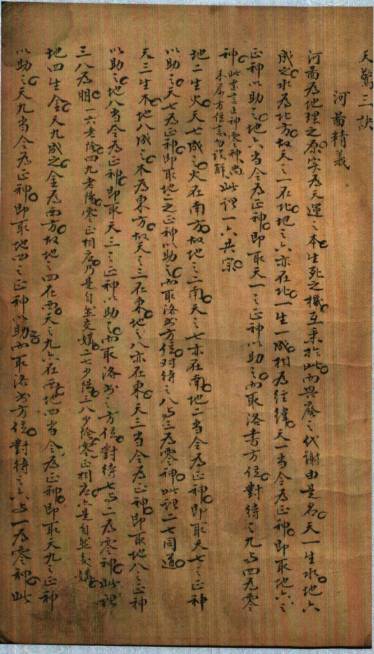 天驚三訣
河圖精義
河圖為地理之原實為天運之本生死之機互乘於此而興廢之代謝由是為天一生水地六
成之水為北方故天之一在北地之六亦在北一生一成相為經緯天一當令為正神即取地六之
正神以助之地六當令為正神即取天一之正神以助之而取洛書方位對待之九與四為零
神此謂一六共宗
地二生火天七成之火在南方故地之二南天之七亦在南地二當令為正神即取天七之正神
以助之天七為正神即取地二之正神以助之而取洛書方位對待之八與三為零神此謂二七同道
天三生木地八成之木為東方故天之三在東地之八亦在東天三當令為正神即取地八之正神
以助之地八當令為正神即取天三之正神以助之而取洛書之方位對待七與二為零神此謂
三八為朋
地四生金天九成之金為西方故地之四在西天之九亦在西地四當令為正神即取天九之正神
以助之天九當令為正神即取地四之正神以助之而取洛書方位對待之六與一為零神此